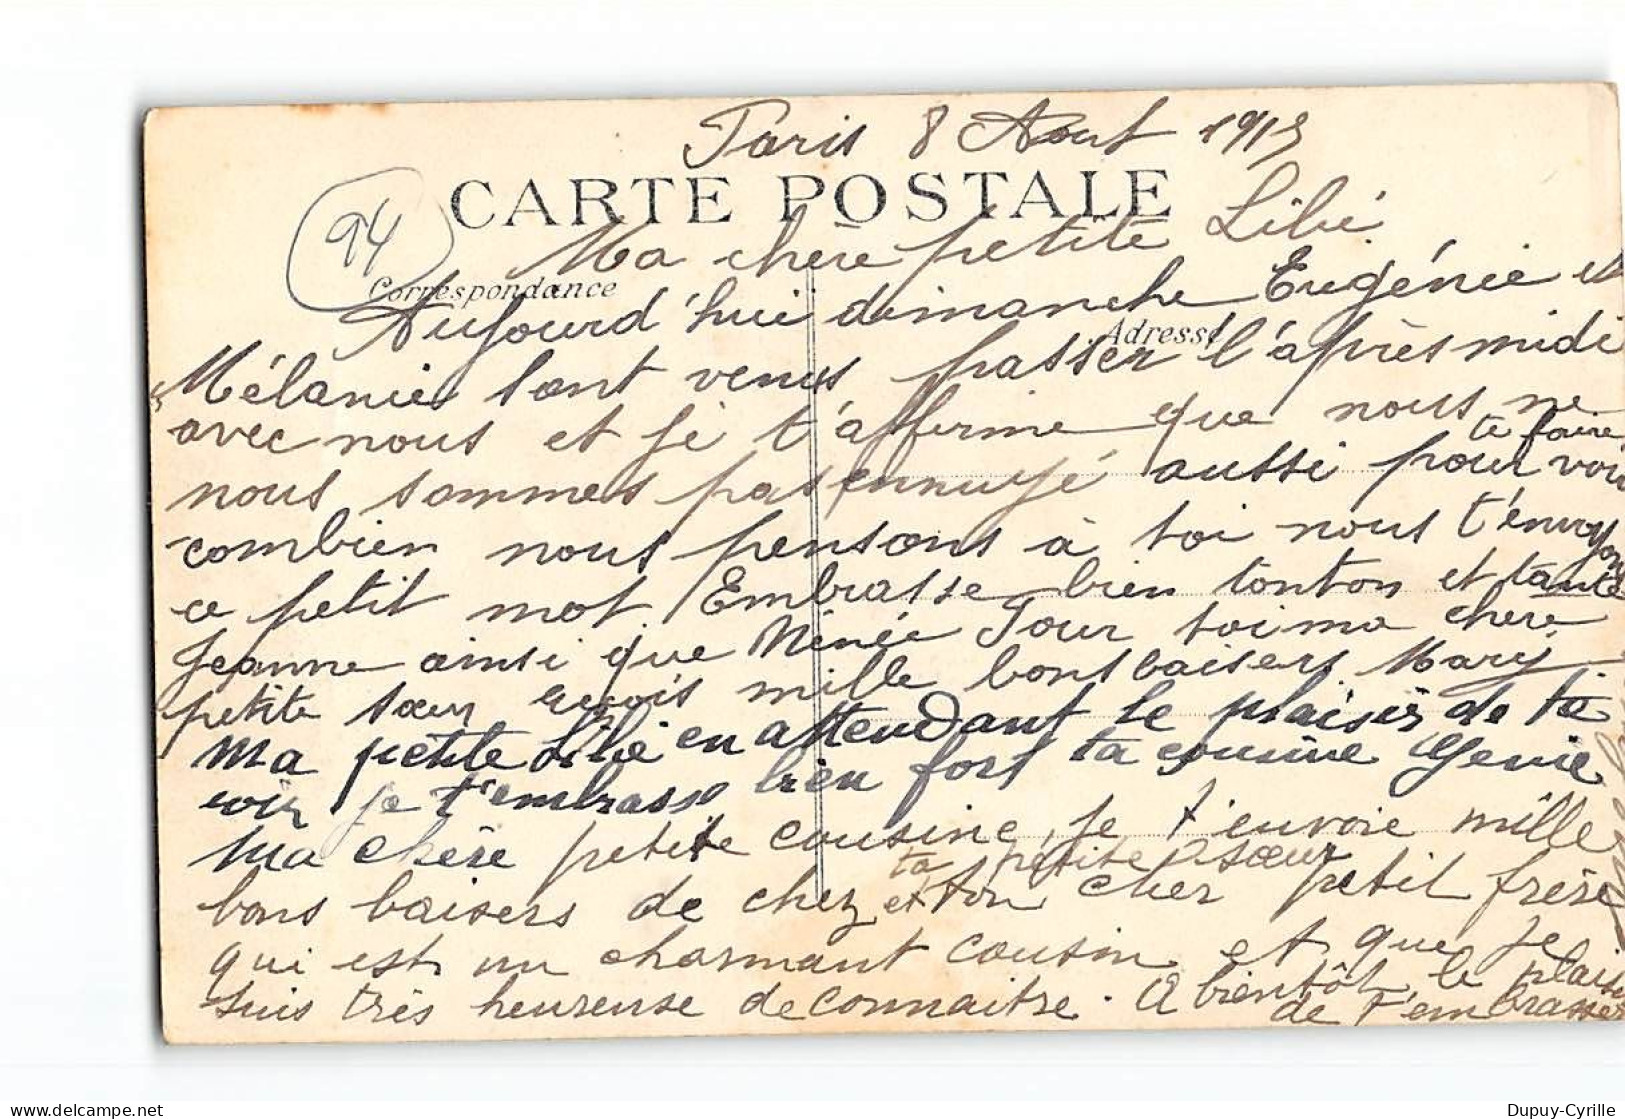 Paris 8 Aout 1915
CARTE POSTALE
94
Ma chère petite Libé
Correspondance
Aujourd'hui dimanche Eugénie et
Adresse
Mélanie sont venus passer l'après midi
avec nous et je t'affirme que nous ne
nous sommes pas ennuyé aussi pour te faire voir
combien nous pensons à toi nous t'envoyons
ce petit mot. Embrasse bien tonton et tante
Jeanne ainsi que Nénée Pour toi ma chere
petite sœur reçois mille bons baisers. Mary
Ma petite Libé en attendant le plaisir de te
voir je t'embrasse bien fort ta cousine Génie
Ma chère petite cousine, je t'envoie mille
bons baisers de chez ta petite sœur et ton cher petit frère
qui est un charmant cousin et que je
suis très heureuse de connaitre. A bientôt le plaisir
de t'embrasser
Dupuy-Cyrille